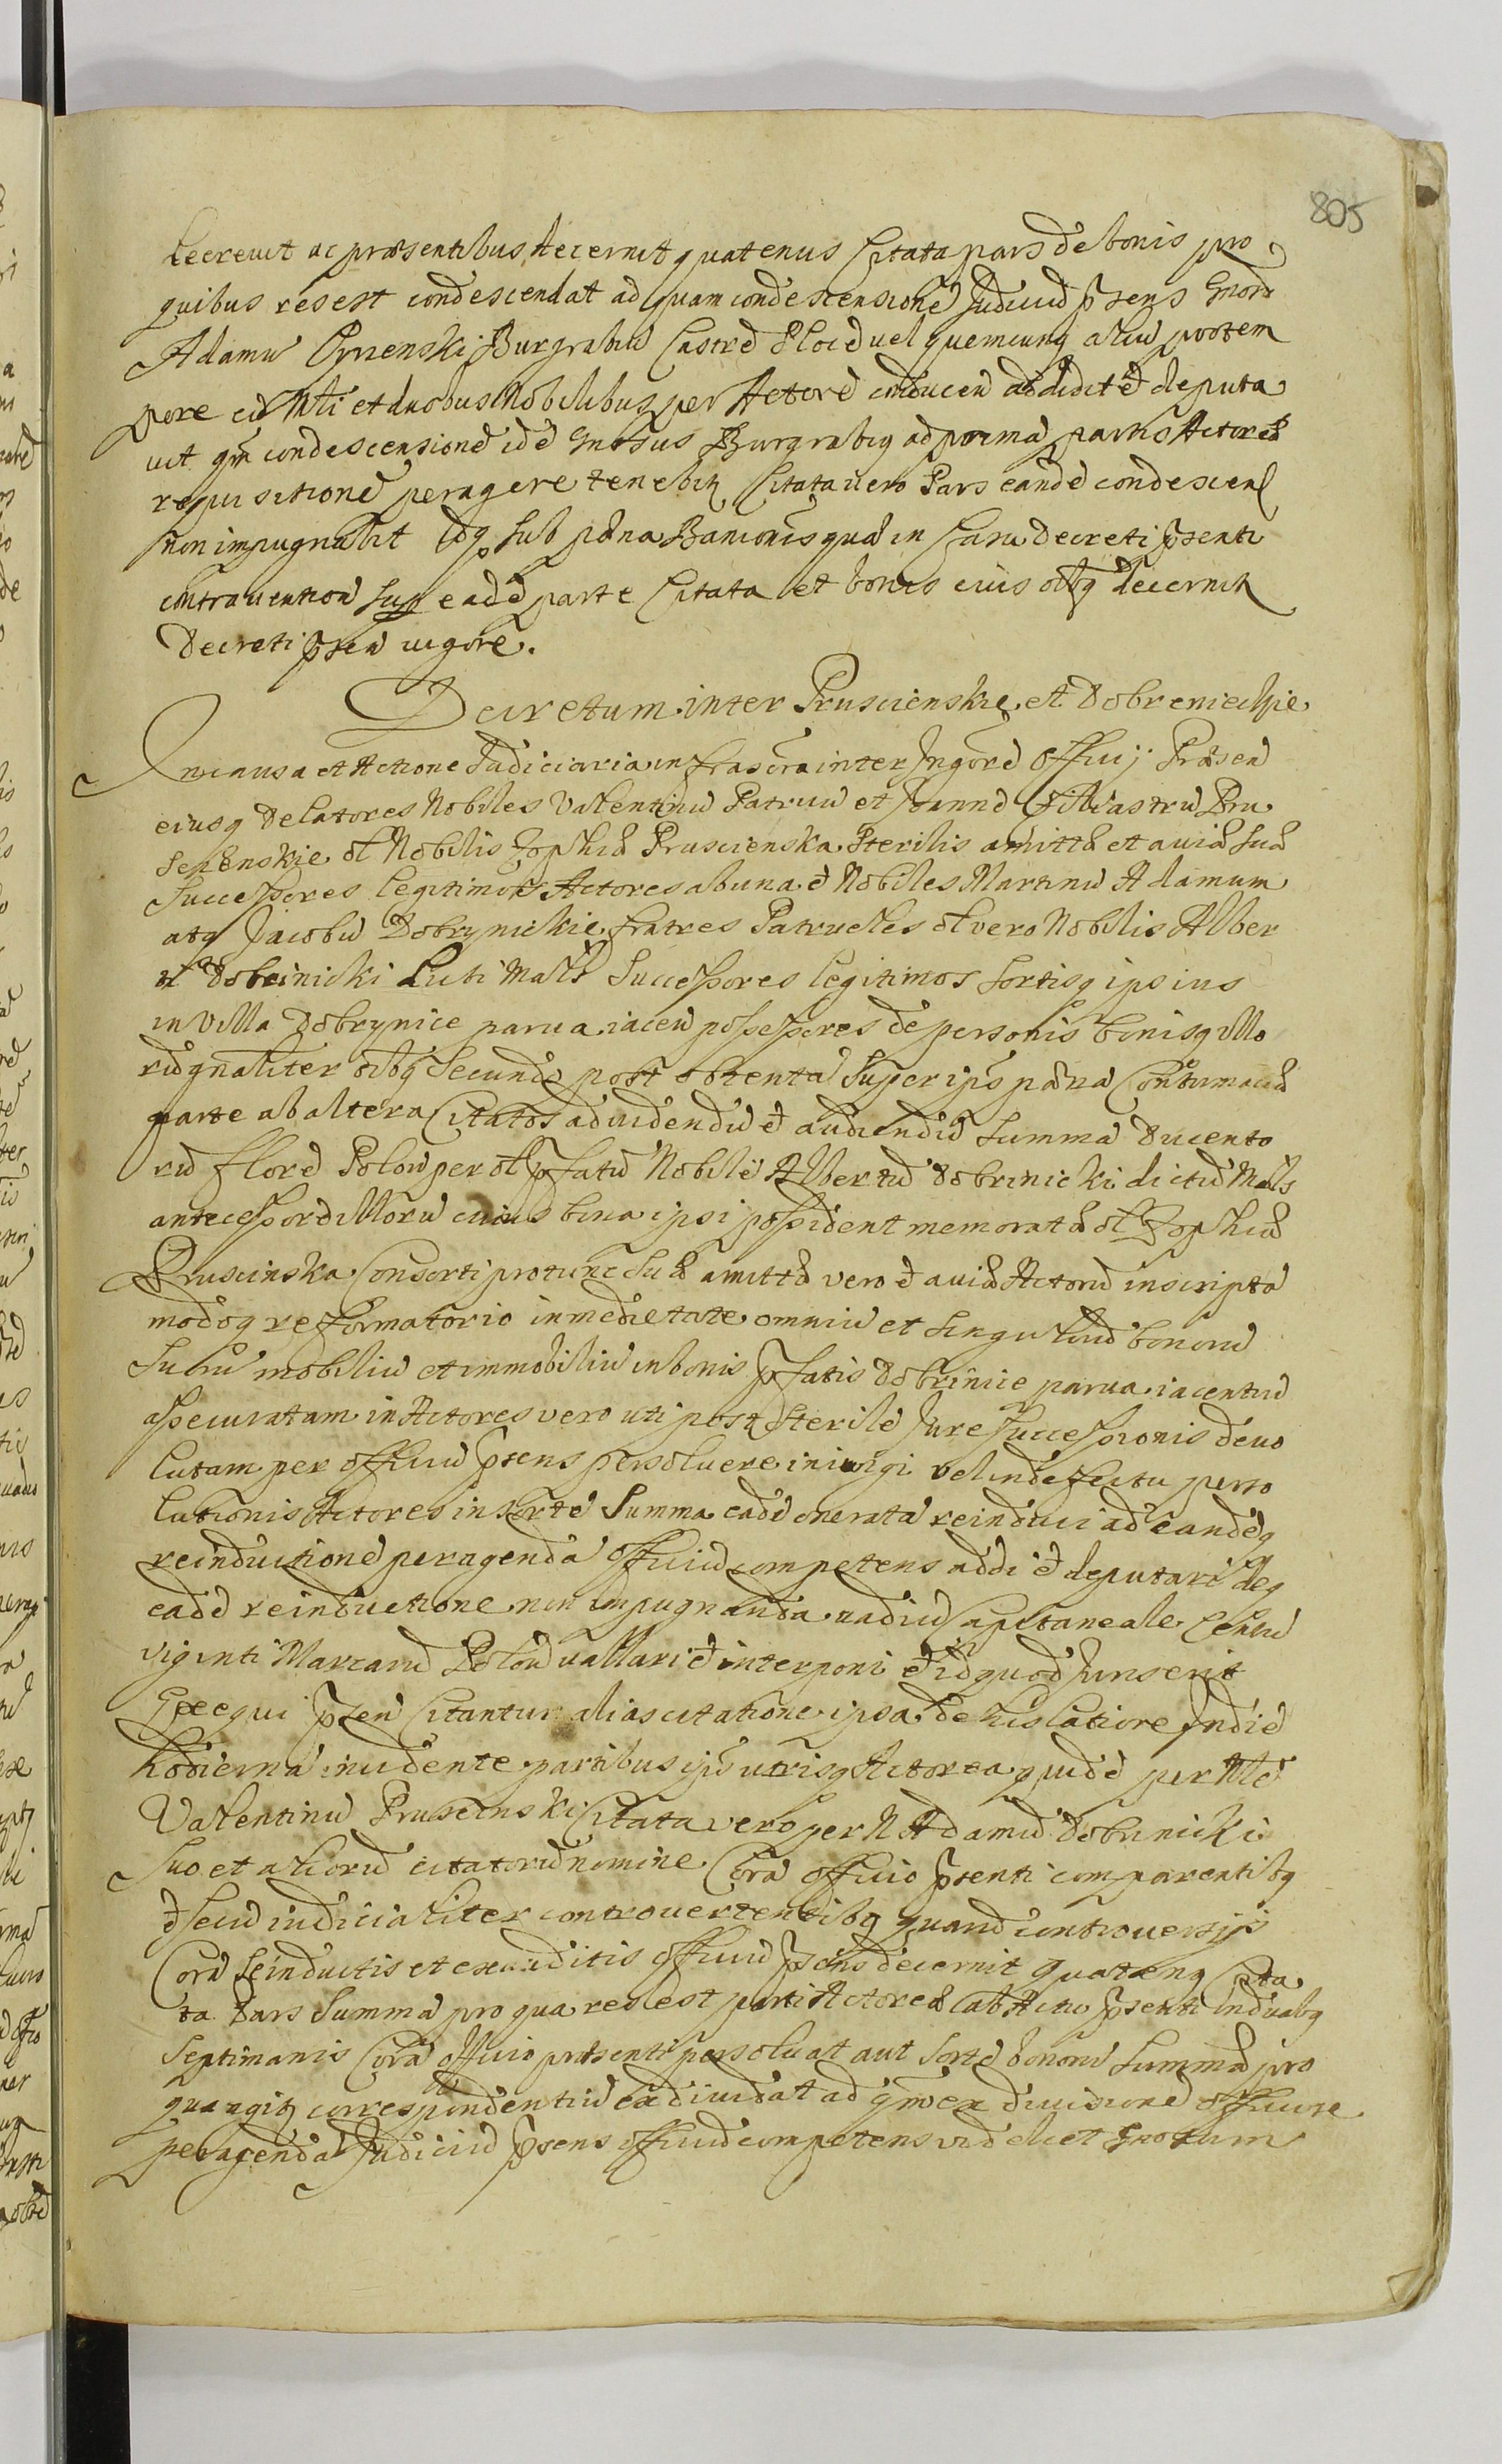 805
decrevit ac præsentibus decernit quatenus Citata pars de bonis pro
quibus res est condescendat ad quam condescensione Judiciu psens Gnosu
Adamu Burgrabiu Castre Ploc vel quemcunq aliu pro tem
pore cu Mli et duobus Nobilibus per Actore inducen addidit et deputa
vit qm condescensione ide Gnosus Burgrabiq ad prima partis Actorea
requisitione peragere tenebit Citata vero Pars eande condescens
non impugnabit idq sub pæna Banionis qua in Casu decreti psenti
contravention sup eade parte Citata et bonis eius oibq decernit
Decreti psen vigore.
Decretum inter Pruscienskie et Dobrenieckie
In causa et Actione Judiciaria infrascra inter Ingore Officij Præsen
eiusq Delatores Nobiles Valentinu Patruu et Joanne Filiastru Pru
scienskie ol Nobilis Zophia Pruscienska Sterilis amitta et avia sua
Successores legitimos Actores ab una et Nobiles Martinu Adamum
atq Jacobu Dobrynickie fratres Patrueles ol vero Nobilis Alber
ti Dobrinicki Dicti Mals Successores legitimos sortisq ipsius
in Villa Dobrynice parva iacen possessores de personis bonisq illo
ru gnaliter oibq Secundo post obtenta super ipis pæna Contumacia
parte ab altera Citatos ad videndu et audiendu Summa Ducento
ru flore Polon per ol pfatu Nobile Albertu Dobrinicki dictu Mals
antecessore illoru cuius bona ipsi possident memorata ol Zophia
Pruscinska Consorti pro tunc sua amitta vero et avia Actoru inscripta
modoq reformatorio in medietate omniu et singuloru bonoru
Suoru mobiliu et immobiliu in bonis pfatis Dobrinice parva iacentiu
assecuratam in Actores vero uti post Sterile Jure Successionis devo
lutam per officiu psens persolvere iniungi vel in defectu perso
lutionis Actores in sorte Summa eade onerata reinduci ad eandeq
reinductione peragenda officiu competens addi et deputari deq
eade reinductione non impugnanda vadiu Capitaneale Centu
viginti Marcaru Polon vallari et interponi et id quod Juris erit
exequi psen Citantur alias citatione ipsa de his latiore In die
hodierna incidente partibus ipis utrisq Actorea quide per Nle
Valentinu Pruscinski Citata vero per N Adamu Dobrinicki
suo et alioru citatoru nomine Cora officio psenti comparentibq
et secu iudicialiter controvertentibq quaru controversijs
Cora se inductis et exauditis officiu psens decernit quatenq Cita
ta Pars Summa pro qua res est parti Actorea ab Actu psenti in duabq
Septimanis Cora officio præsenti persolvat aut sorte bonoru Summa pro
qua agit correspondentiu ex dividat ad qm ex divisione officiose
peragenda Judiciu psens officiu competens videlicet Gnosum